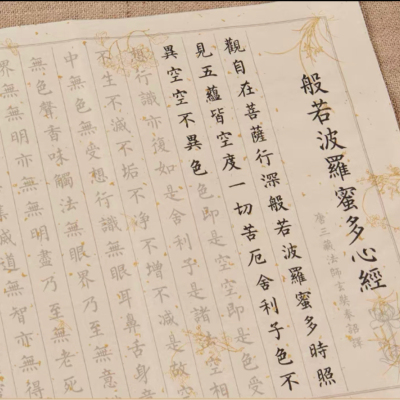 般若波羅蜜多心經
唐三藏法師玄奘奉詔譯
觀自在菩薩行深般若波羅蜜多時照
見五蘊皆空度一切苦厄舍利子色不
異空空不異色色即是空空即是色受
想行識亦復如是舍利子是諸法空相
不生不滅不垢不淨不增不減是故空
中無色無受想行識無眼耳鼻舌身意
無色聲香味觸法無眼界乃至無意
界無無明亦無無明盡乃至無老死
集滅道無智亦無得